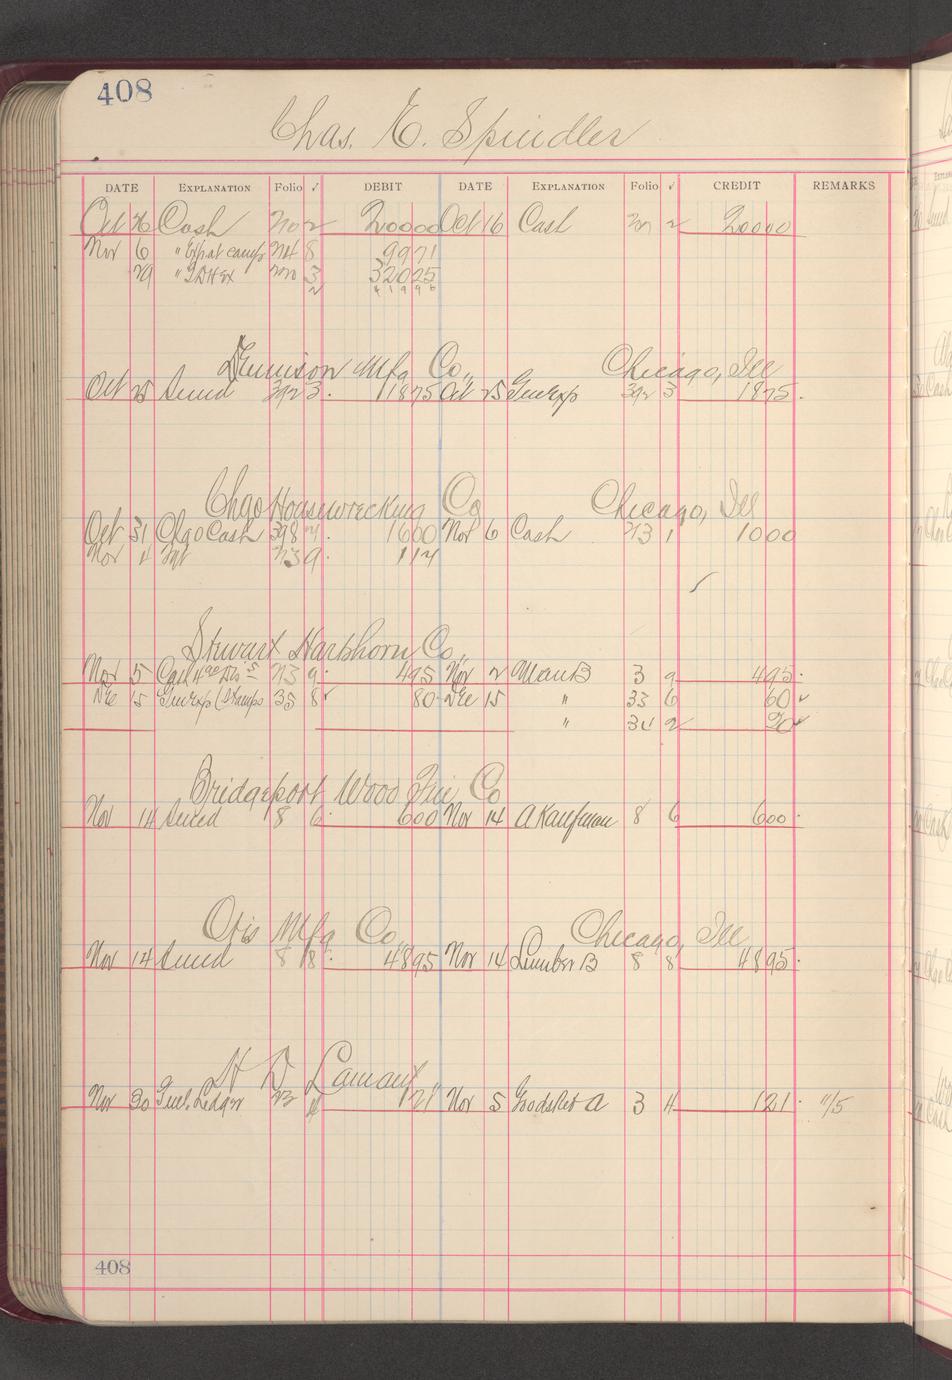 408
Chas. E. Spindler
DATE EXPLANATION Folio ✓ DEBIT DATE EXPLANATION Folio ✓ CREDIT REMARKS
Oct 26 Cash 2 20000 Oct 16 Cash 2 20000
Nov 6 " 8 9971
29 " 3 32025
2 41996
Dennison Mfg Co., Chicago, Ill
Oct 25 Sund 392 3 1875 Oct 25 GenExp 392 3 1875
Chgo Housewrecking Co Chicago, Ill
Oct 31 Chgo Cash 398 1600 Nov 6 Cash 1 1000
Nov 9
Stewart Hartshorn Co.,
Nov 5 9 495 Nov 2 9 495
Dec 15 GenExp (Stamps 35 8 80 Dec 15 " 33 6 60 ✓
" 34 2 20 ✓
Bridgeport Wood Fin Co
Nov 14 Sund 8 6 600 Nov 14 A Kaufman 8 6 600
Otis Mfg Co., Chicago, Ill
Nov 14 Sund 8 8 4895 Nov 14 Lumber B 8 8 4895
H D Lamant
Nov 30 Genl. Ledger 4 121 Nov 5 A 3 4 121 11/5
408